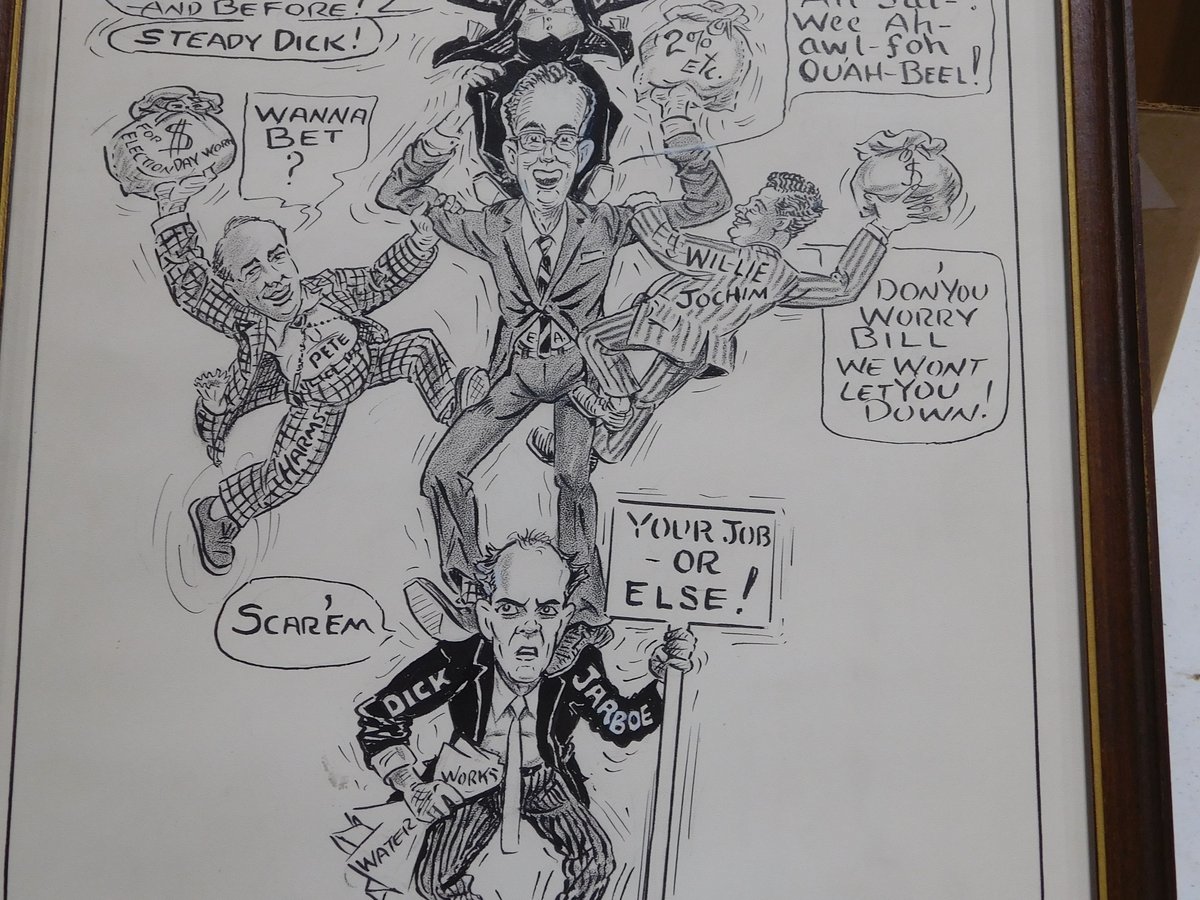 AND BEFORE!
STEADY DICK!
Wee Ah-
awl-foh
OUAH-BEEL!
2%
FOR
$
ELECTION-DAY WORK
WANNA
BET
?
$
WILLIE
JOCHIM
PETE
HARMS
DON'YOU
WORRY
BILL
WE WONT
LET YOU
DOWN!
YOUR JOB
- OR
ELSE!
SCAR'EM
DICK
JARBOE
WORKS
WATER